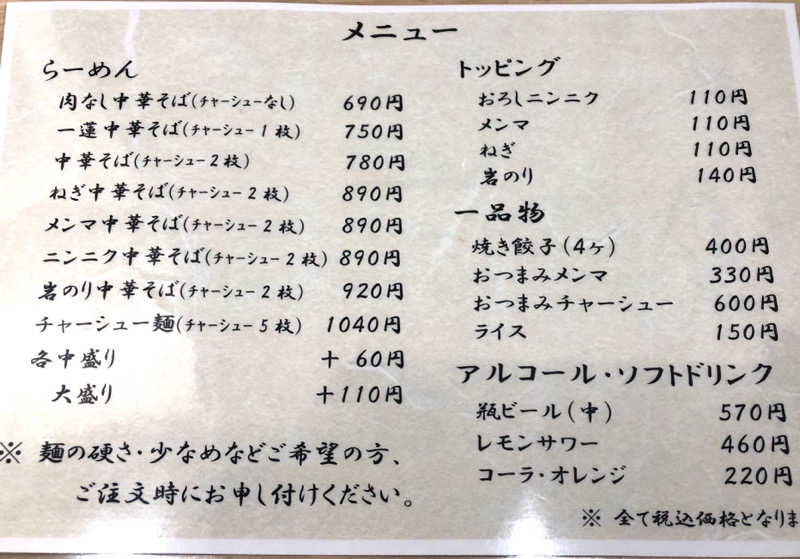 メニュー
らーめん
肉なし中華そば(チャーシューなし) 690円
一蓮中華そば(チャーシュー1枚) 750円
中華そば(チャーシュー2枚) 780円
ねぎ中華そば(チャーシュー2枚) 890円
メンマ中華そば(チャーシュー2枚) 890円
ニンニク中華そば(チャーシュー2枚) 890円
岩のり中華そば(チャーシュー2枚) 920円
チャーシュー麺(チャーシュー5枚) 1040円
各中盛り +60円
大盛り +110円
※ 麺の硬さ・少なめなどご希望の方、
ご注文時にお申し付けください。
トッピング
おろしニンニク 110円
メンマ 110円
ねぎ 110円
岩のり 140円
一品物
焼き餃子(4ヶ) 400円
おつまみメンマ 330円
おつまみチャーシュー 600円
ライス 150円
アルコール・ソフトドリンク
瓶ビール(中) 570円
レモンサワー 460円
コーラ・オレンジ 220円
※ 全て税込価格となりま